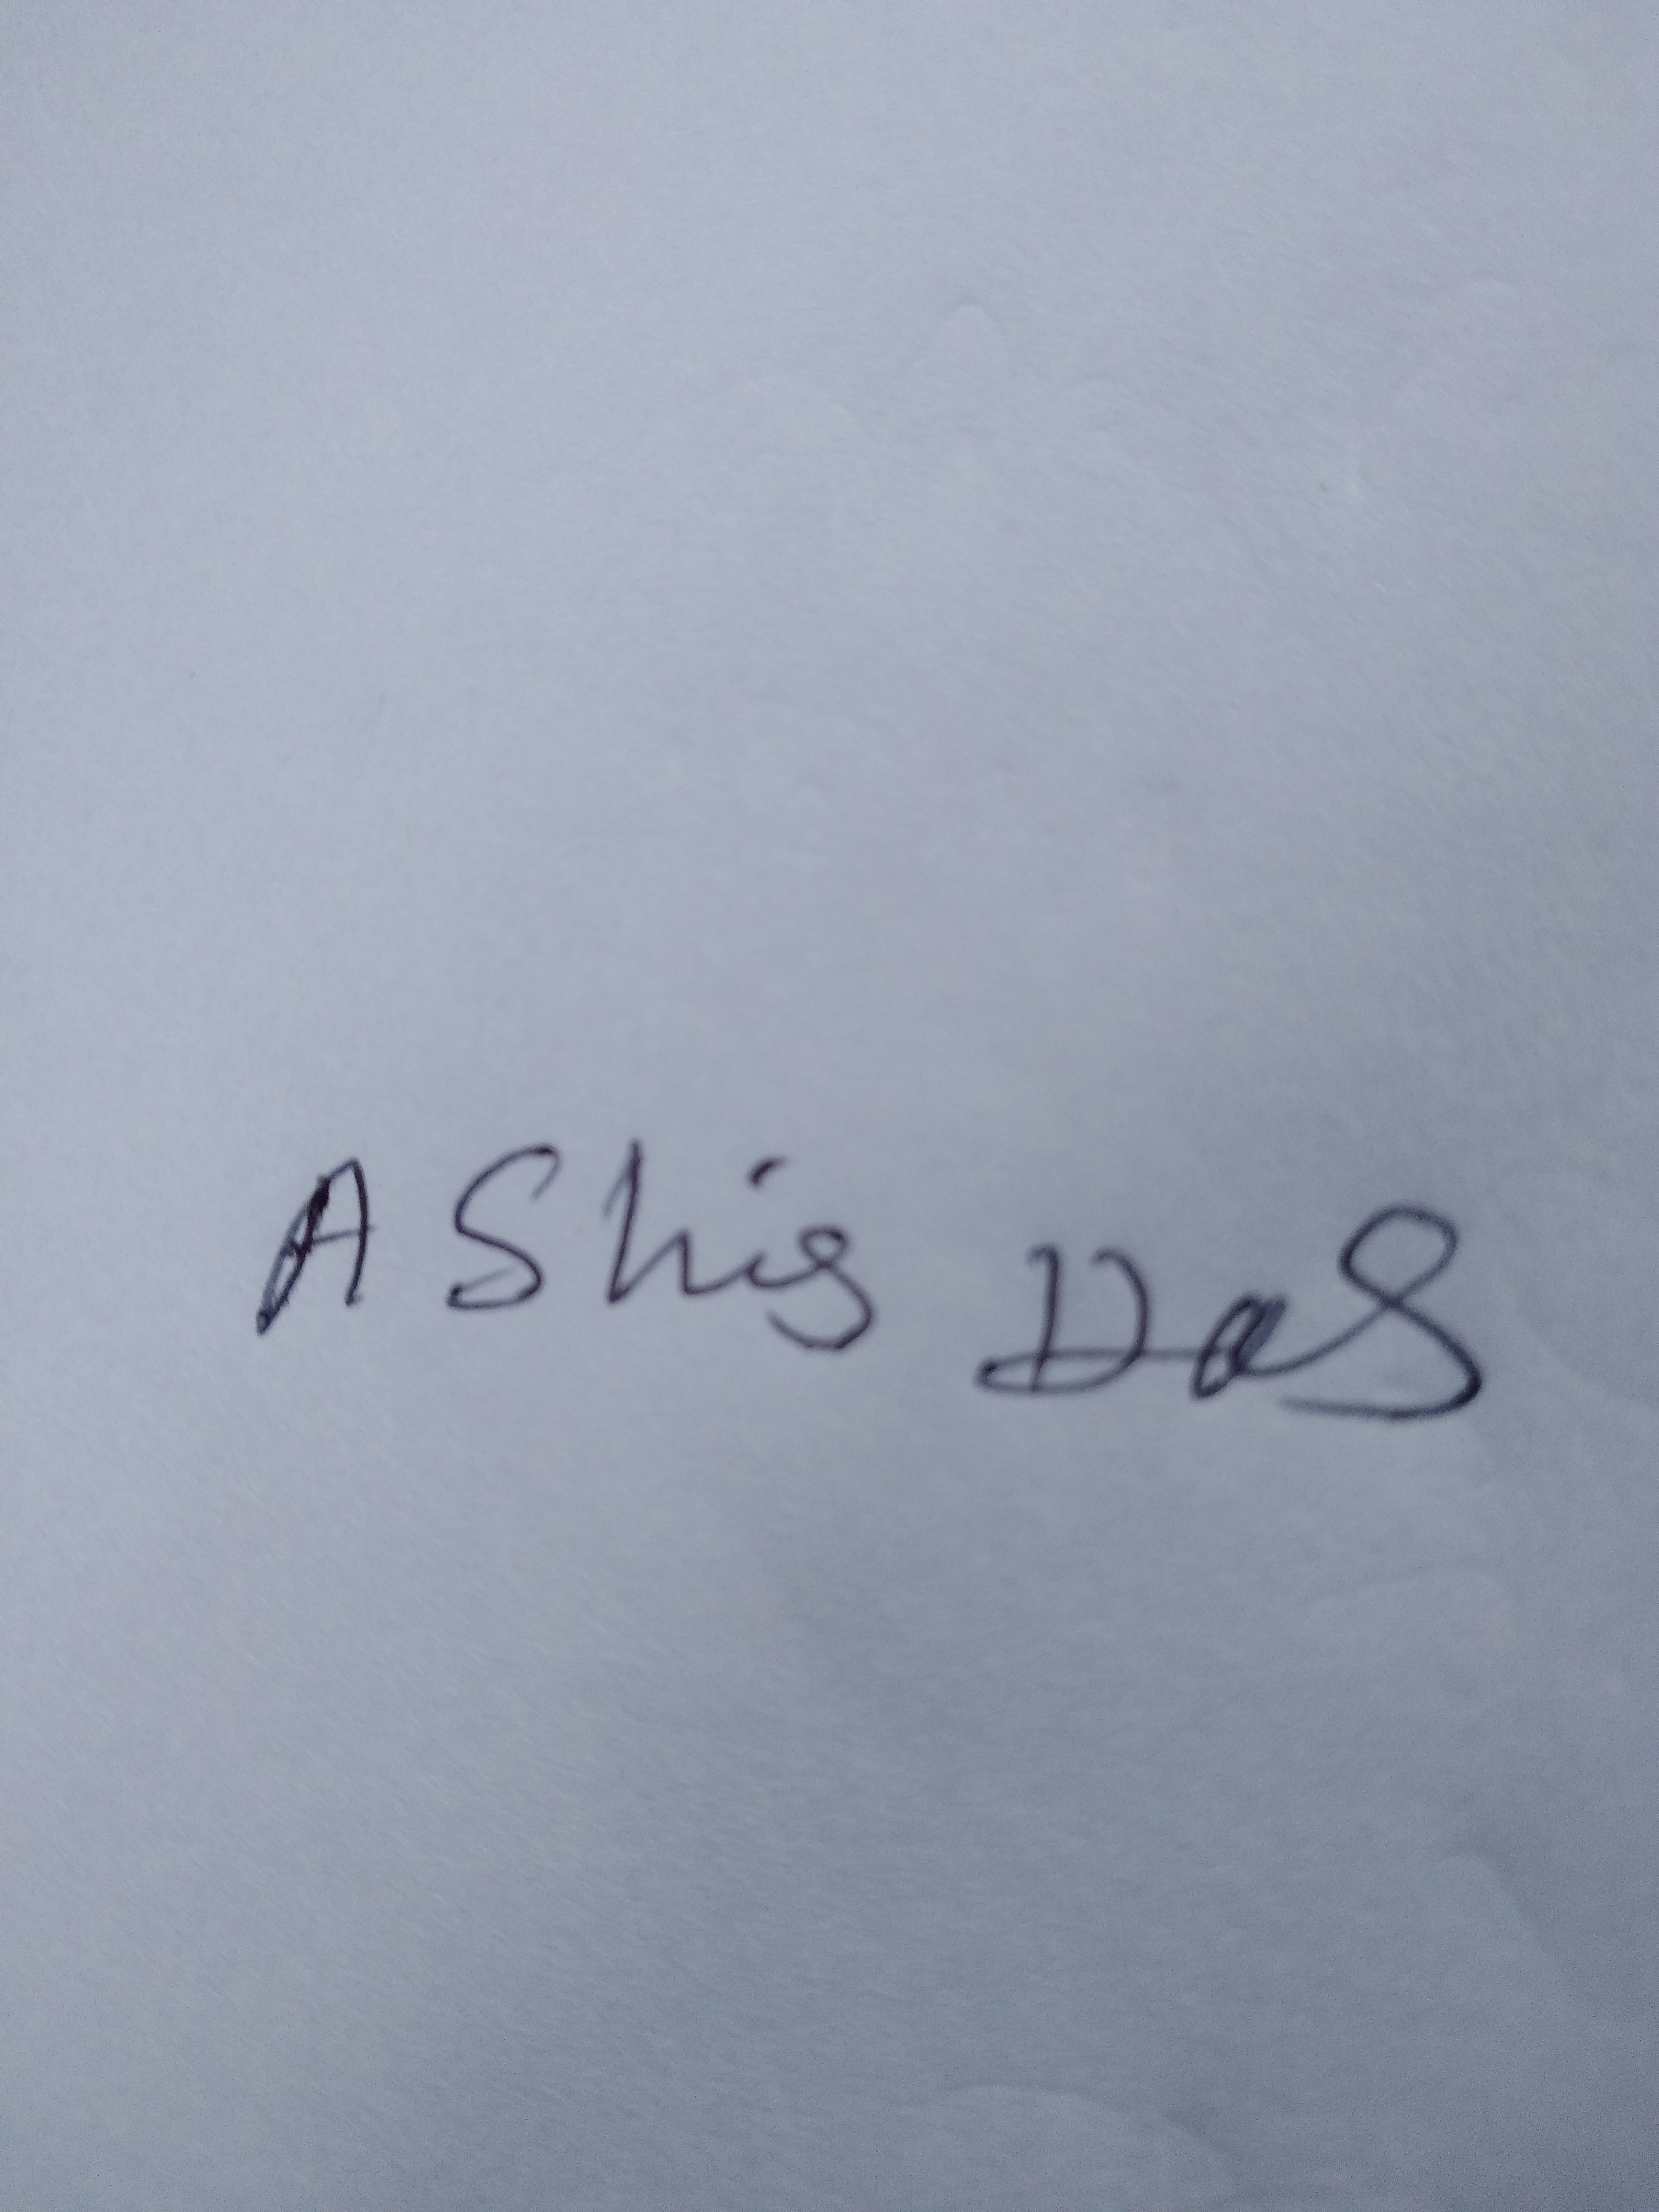 AShis Das